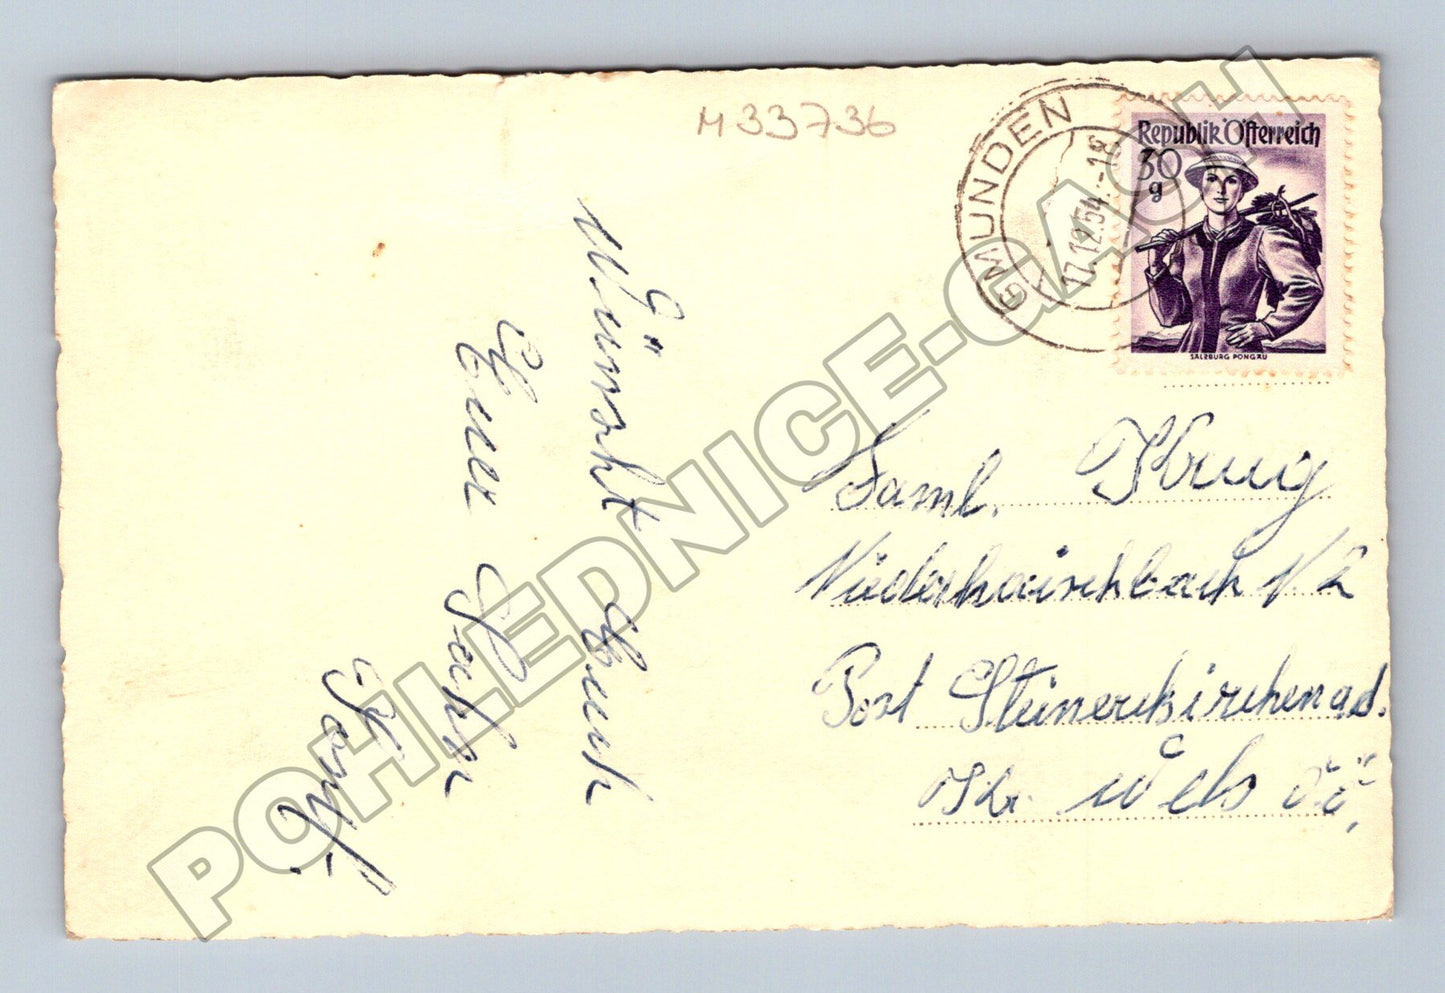 M 33736
GMUNDEN
17.12.54.-18
Republik Österreich
30
g
SALZBURG PONGAU
Wünscht Euch
Euer
Faml. Krug
Niederhaischbach 1/2
Post Steinerkirchen a.d.
Kr. Wels O.Ö.
POHLEDNICE-GACH